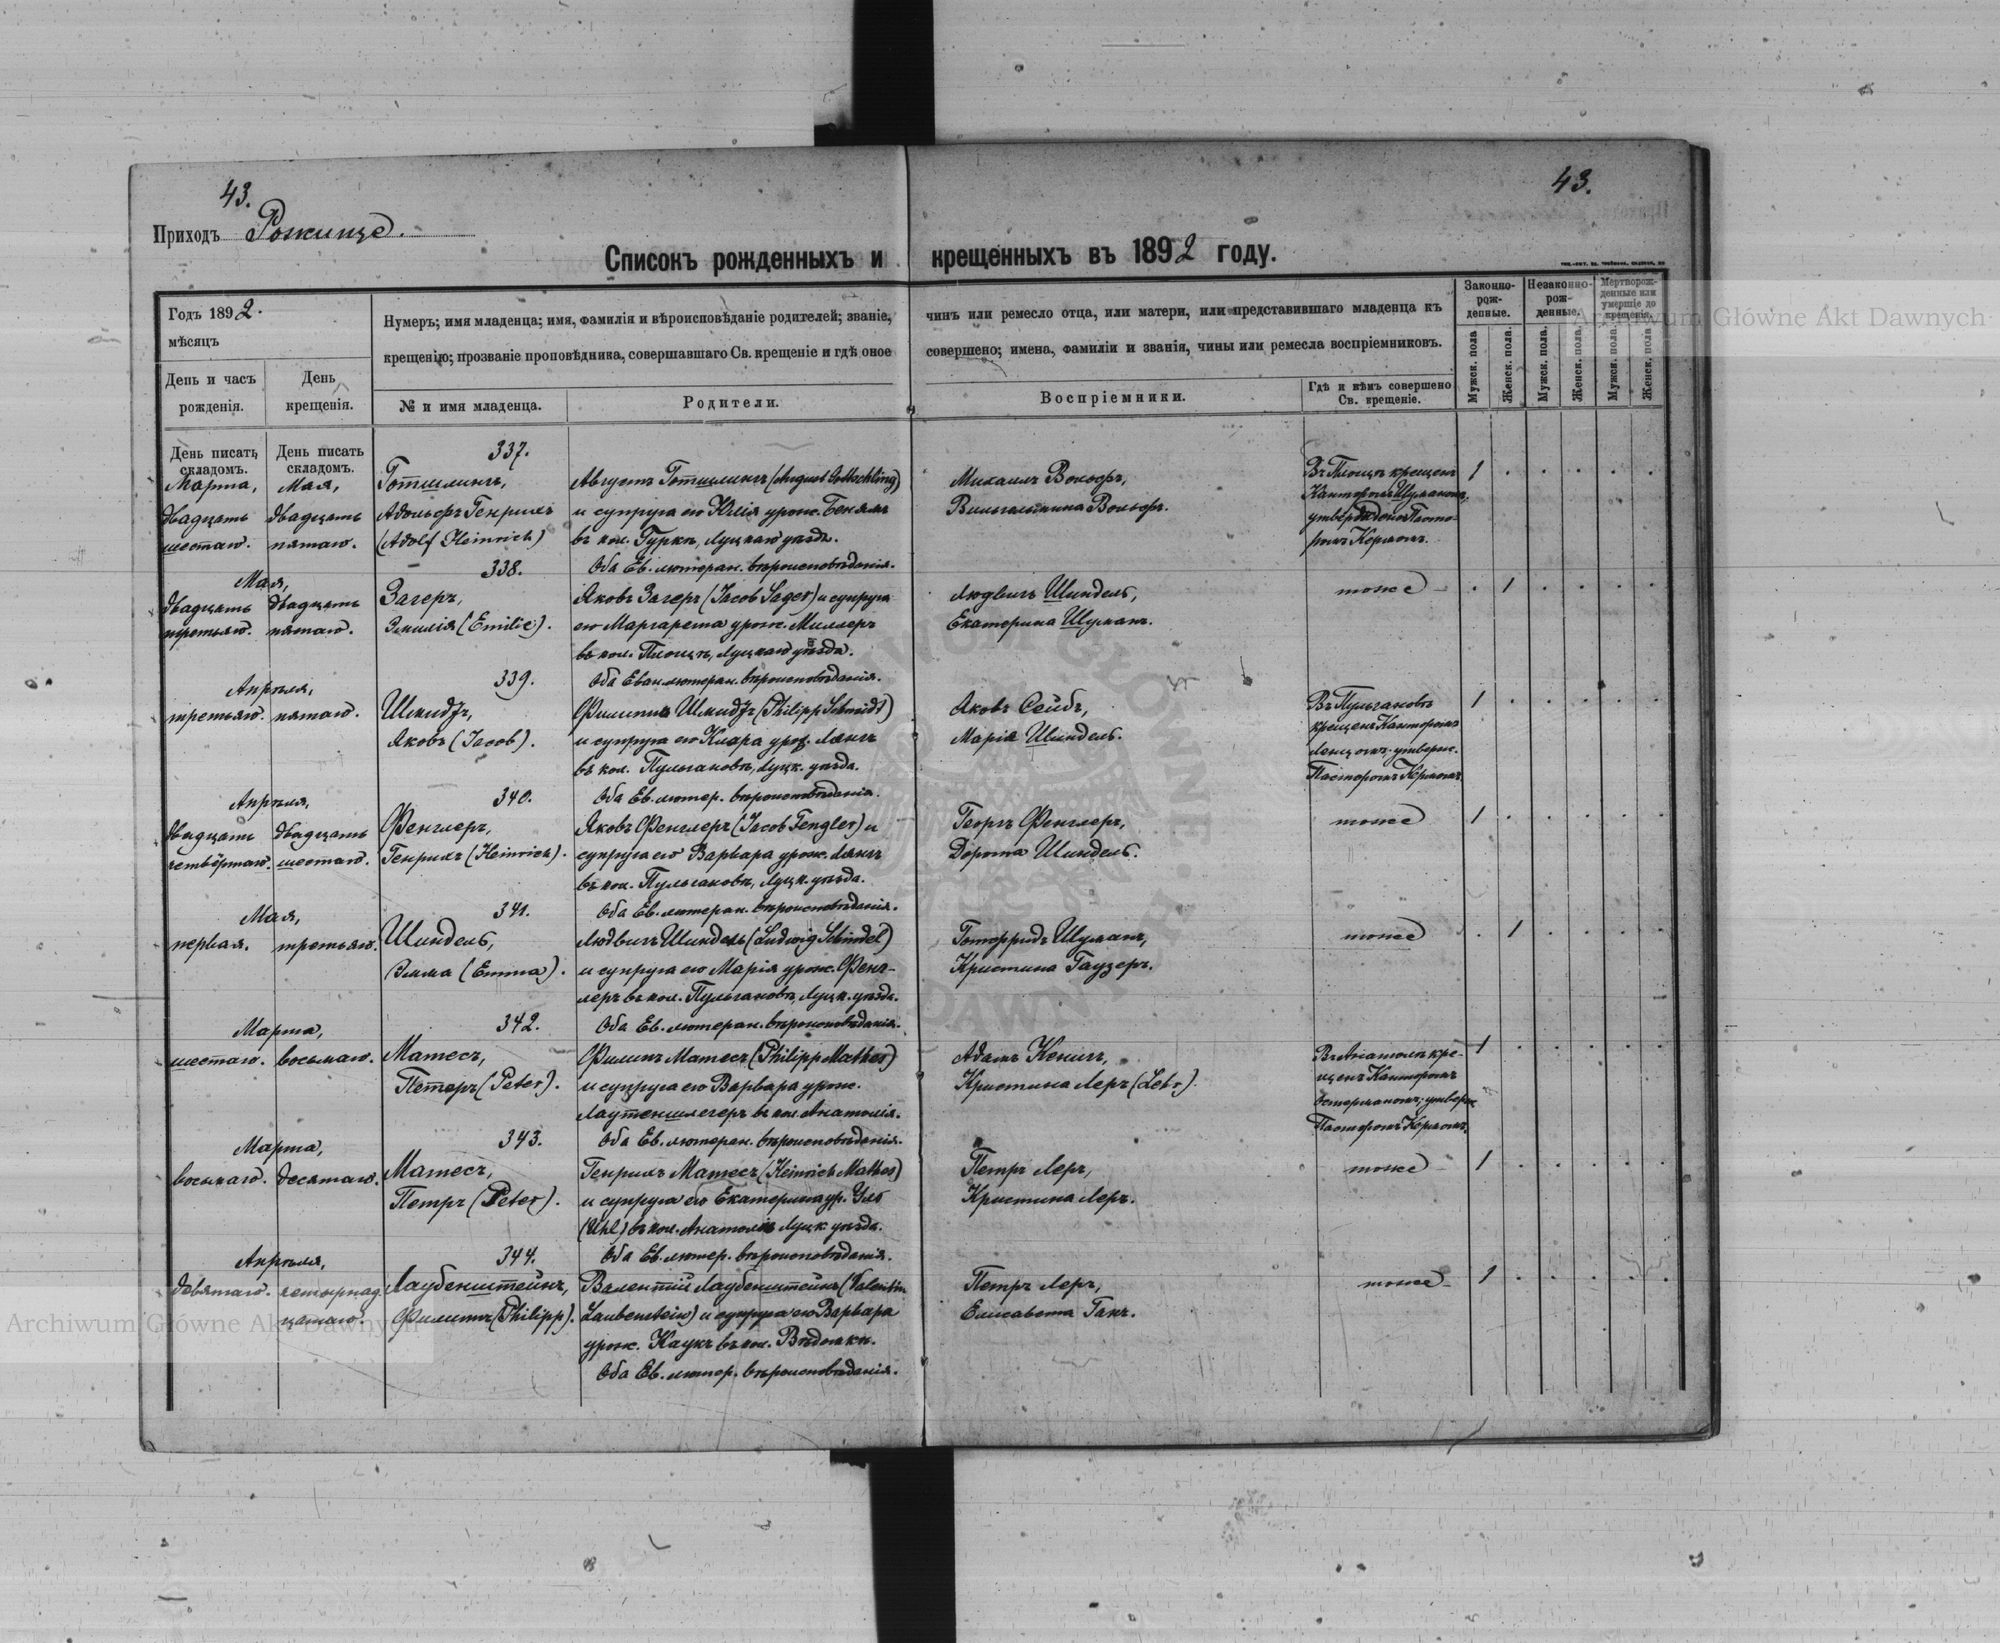 43.
43.
Приходъ Рожище.
Списокъ рожденныхъ и крещенныхъ въ 1892 году.
Годъ 1892.
мѣсяцъ
Нумеръ; имя младенца; имя, фамилія и вѣроисповѣданіе родителей; званіе, чинъ или ремесло отца, или матери, или представившаго младенца къ
крещенію; прозваніе проповѣдника, совершавшаго Св. крещеніе и гдѣ оное совершено; имена, фамиліи и званія, чины или ремесла воспріемниковъ.
Законно-рож-денные.
Незаконно-рож-денные.
Мертворож-денные или умершіе до крещенія.
День и часъ рожденія.
День крещенія.
№ и имя младенца.
Родители.
Воспріемники.
Гдѣ и кѣмъ совершено Св. крещеніе.
Мужск. пола
Женск. пола.
Мужск. пола.
Женск. пола.
Мужск. пола.
Женск. пола
День писать складомъ.
День писать складомъ.
337.
Марта, двадцать шестаго.
Мая, двадцать пятаго.
Готшлингъ,
Адольфъ Генрихъ
(Adolf Heinrich)
Августъ Готшлингъ (August Gottschling)
и супруга его Юлія урож. Бенямъ
въ кол. Гуркѣ, Луцкаго уѣзда.
Оба Ев. лютеран. вѣроисповѣданія.
Михаилъ Воньфъ,
Вильгельмина Воньфъ.
Въ Площѣ крещенъ
Канторомъ Шуманомъ,
утвержденъ Пасто-
ромъ Кермомъ.
1
338.
Мая,
двадцать третьяго.
двадцать пятаго.
Загеръ,
Эмилія (Emilie).
Яковъ Загеръ (Jacob Sager) и супруга
его Маргарета урож. Миллеръ
въ кол. Площѣ, Луцкаго уѣзда.
Оба Еван. лютеран. вѣроисповѣданія.
Людвигъ Шиндель,
Екатерина Шуманъ.
тоже
1
339.
Апрѣля,
третьяго. пятаго.
Шмидтъ,
Яковъ (Jacob).
Филиппъ Шмидтъ (Philipp Schmidt)
и супруга его Клара урож. Лангъ
въ кол. Пульгановѣ, Луцк. уѣзда.
Оба Ев. лютер. вѣроисповѣданія.
Яковъ Сейбъ,
Марія Шиндель.
Въ Пульгановѣ
крещенъ Канторомъ
Ленцомъ; утверж.
Пасторомъ Кермомъ
1
340.
Апрѣля,
двадцать четвёртаго.
двадцать шестаго.
Фенглеръ,
Генрихъ (Heinrich).
Яковъ Фенглеръ (Jacob Fengler) и
супруга его Варвара урож. Лангъ
въ кол. Пульгановѣ, Луцк. уѣзда.
Оба Ев. лютеран. вѣроисповѣданія.
Георгъ Фенглеръ,
Дорота Шиндель.
тоже
1
341.
Мая,
первая. третьяго.
Шиндель,
Эмма (Emma).
Людвигъ Шиндель (Ludwig Schindel)
и супруга его Марія урож. Фенг-
леръ въ кол. Пульгановѣ, Луцк. уѣзда.
Оба Ев. лютеран. вѣроисповѣданія.
Готфридъ Шуманъ,
Кристина Гаузеръ.
тоже
1
342.
Марта,
шестаго. восьмаго.
Матесъ,
Петеръ (Peter).
Филипъ Матесъ (Philipp Mathes)
и супруга его Варвара урож.
Лаутеншлегеръ въ кол. Анатолія.
Оба Ев. лютеран. вѣроисповѣданія.
Адамъ Кенигъ,
Кристина Леръ (Lehr).
Въ Анатоліи кре-
щенъ Канторомъ
Остерманомъ; утверж.
Пасторомъ Кермомъ.
1
343.
Марта,
восьмаго. десятаго.
Матесъ,
Петръ (Peter).
Генрихъ Матесъ (Heinrich Mathes)
и супруга его Екатерина ур. Уль
(Uhl) въ кол. Анатолія Луцк. уѣзда.
Оба Ев. лютер. вѣроисповѣданія.
Петръ Леръ,
Кристина Леръ.
тоже
1
344.
Апрѣля,
девятаго. четырнад-
цатаго.
Лаубенштейнъ,
Филиппъ (Philipp).
Валентій Лаубенштейнъ (Valentin
Laubenstein) и супруга его Варвара
урож. Каукъ въ кол. Вядомки.
Оба Ев. лютер. вѣроисповѣданія.
Петръ Леръ,
Елисавета Гакъ.
тоже
1
Archiwum Główne Akt Dawnych
Archiwum Główne Akt Dawnych